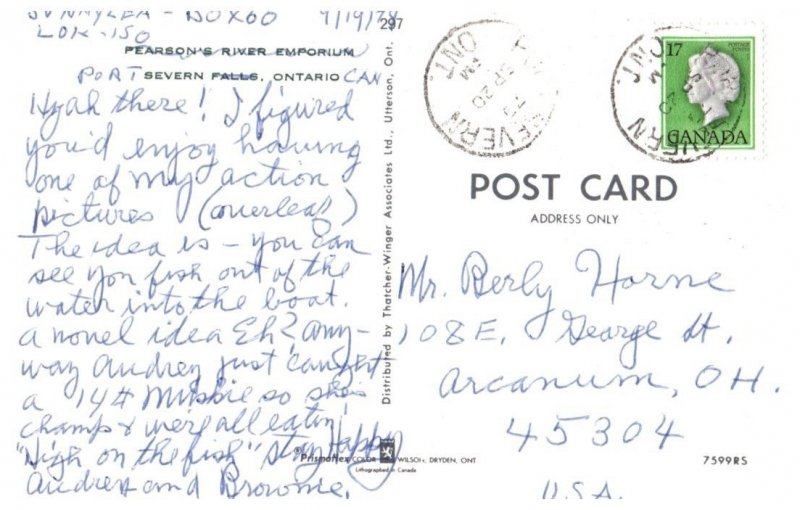 SUNNYLEA - BOX 60 9/19/79
L0K-1S0
PEARSON'S RIVER EMPORIUM
PORT SEVERN FALLS, ONTARIO CAN
Hyah there! I figured
you'd enjoy having
one of my action
pictures (overleaf)
The idea is - you can
see you fish out of the
water into the boat.
a novel idea Eh? Any-
way Audrey just caught
a 14# Muskie so she's
champ & we're all eatin'
"High on the fish" Stay Happy
Audrey and Brownie.
297
Distributed by Thatcher-Winger Associates Ltd., Utterson, Ont.
SEVERN
ONT
PM
SEP 20
79
17
POSTAGE POSTES
CANADA
SEVERN
ONT
PM
POST CARD
ADDRESS ONLY
Mr. Berly Horne
108 E. George St.
Arcanum, OH.
45304
U.S.A.
Prismaflex COLOR WILSON, DRYDEN, ONT
Lithographed in Canada
7599RS